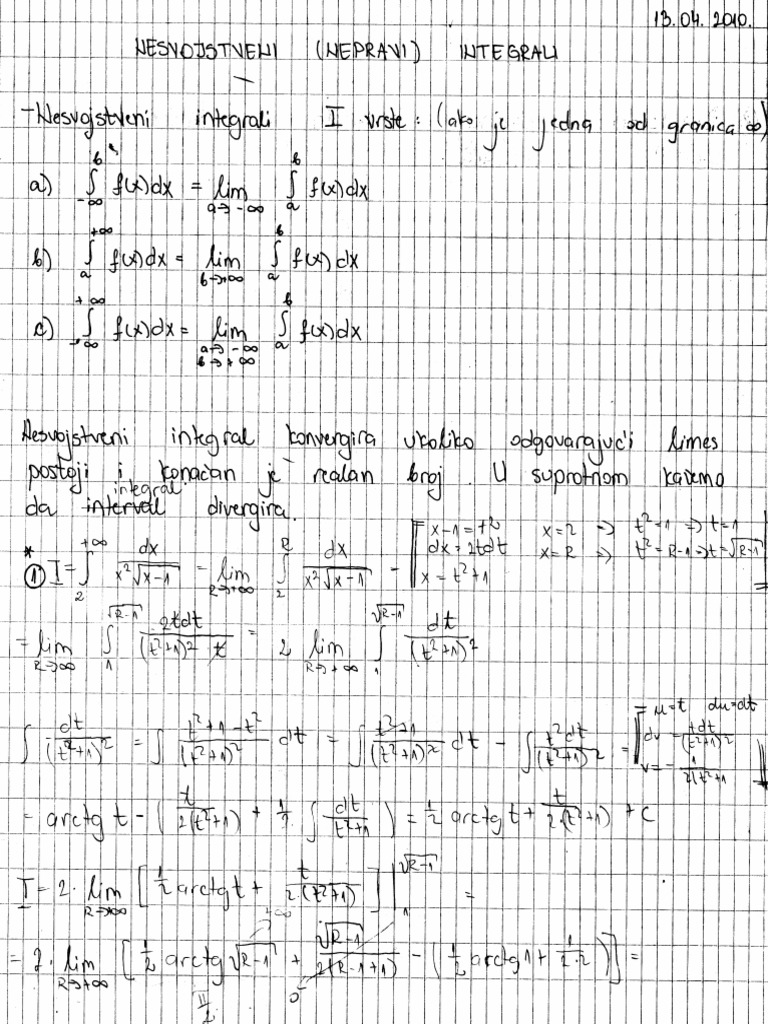 13.04.2010.
NESVOJSTVENI (NEPRAVI) INTEGRALI
- Nesvojstveni integrali I vrste: (ako je jedna od granica ∞)
a) ∫_{-∞}^{b} f(x)dx = lim_{a→-∞} ∫_{a}^{b} f(x)dx
b) ∫_{a}^{+∞} f(x)dx = lim_{b→+∞} ∫_{a}^{b} f(x)dx
c) ∫_{-∞}^{+∞} f(x)dx = lim_{a→-∞, b→+∞} ∫_{a}^{b} f(x)dx
Nesvojstveni integral konvergira ukoliko odgovarajući limes
postoji i konačan je realan broj. U suprotnom kažemo
integral
da interval divergira.
* ① I = ∫_{2}^{+∞} dx/(x²√(x-1)) = lim_{R→+∞} ∫_{2}^{R} dx/(x²√(x-1)) = ‖ x-1=t² x=2 ⇒ t²=1 ⇒ t=1
dx=2tdt x=R ⇒ t²=R-1 ⇒ t=√(R-1)
x=t²+1 ‖ =
= lim_{R→∞} ∫_{1}^{√(R-1)} 2tdt/((t²+1)² t) = 2 lim_{R→+∞} ∫_{1}^{√(R-1)} dt/(t²+1)²
∫ dt/(t²+1)² = ∫ (t²+1-t²)/(t²+1)² dt = ∫ (t²+1)/(t²+1)² dt - ∫ t²dt/(t²+1)² = ‖ u=t du=dt
dv = tdt/(t²+1)²
v = -1/(2(t²+1) ‖
= arctg t - (t/(2(t²+1)) + 1/2 ∫ dt/(t²+1)) = 1/2 arctg t + t/(2(t²+1)) + C
I = 2· lim_{R→∞} [1/2 arctg t + t/(2·(t²+1))] |_{1}^{√(R-1)} =
+∞
= 2· lim_{R→+∞} [1/2 arctg √(R-1) + √(R-1)/(2(R-1+1)) - (1/2 arctg 1 + 1/(2·2))] =
π/2 0